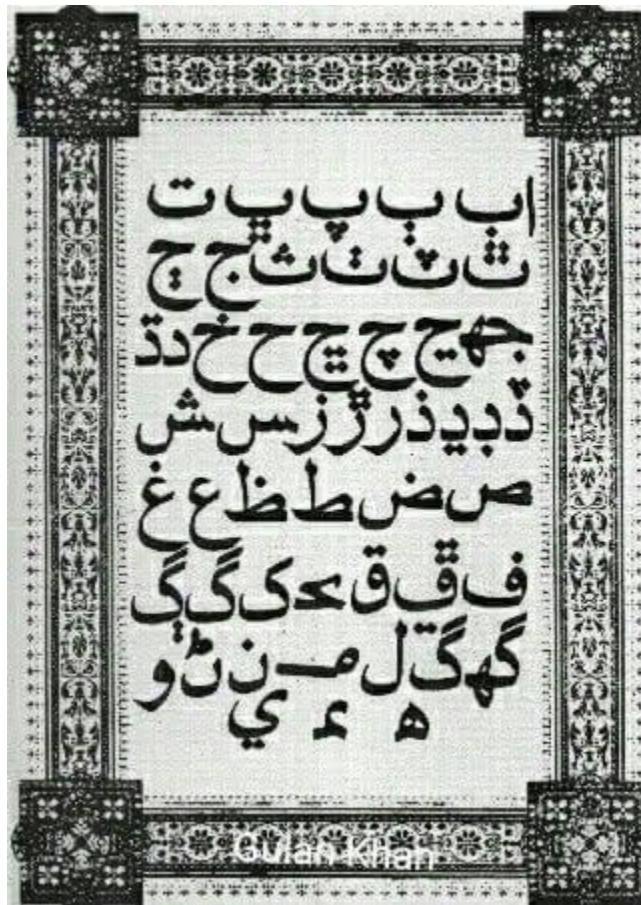 ا ب ٻ پ ڀ ت
ٿ ٽ ٺ ث ج ڄ
جھ ڃ چ ڇ ح خ د ڌ
ڏ ڊ ڍ ذ ر ڙ ز س ش
ص ض ط ظ ع غ
ف ڦ ق ڪ ک گ ڳ
گھ ڱ ل م ن ڻ و
ه ء ي
Gulan Khan